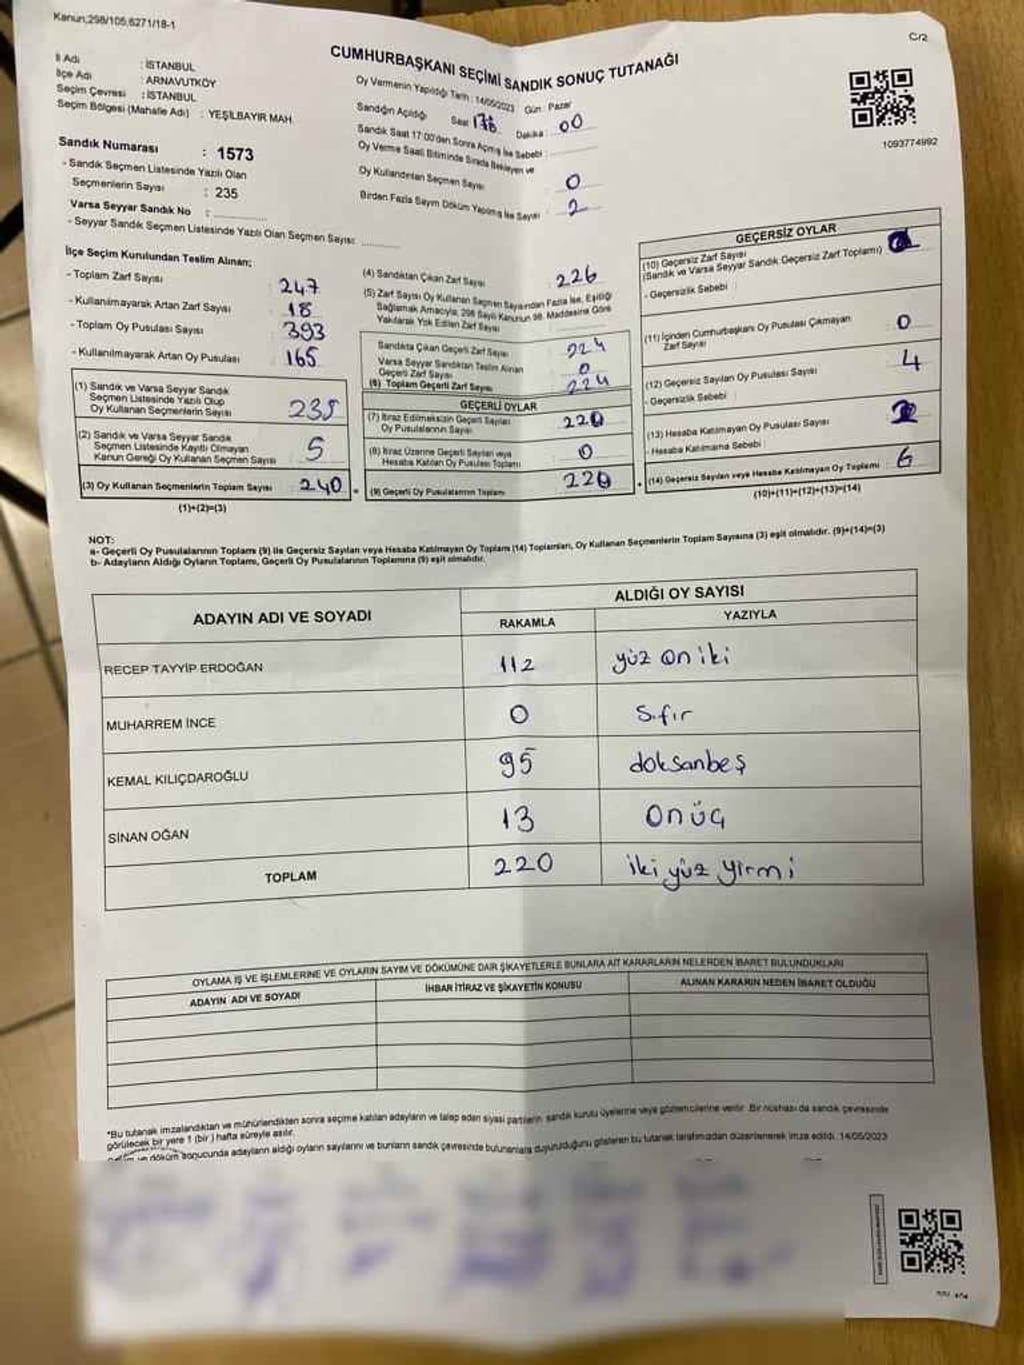 Kanun;298/105,6271/18-1
C/2
CUMHURBAŞKANI SEÇİMİ SANDIK SONUÇ TUTANAĞI
İl Adı : İSTANBUL
İlçe Adı : ARNAVUTKÖY
Seçim Çevresi : İSTANBUL
Seçim Bölgesi (Mahalle Adı) : YEŞİLBAYIR MAH.
Sandık Numarası : 1573
- Sandık Seçmen Listesinde Yazılı Olan
Seçmenlerin Sayısı : 235
Varsa Seyyar Sandık No :
- Seyyar Sandık Seçmen Listesinde Yazılı Olan Seçmen Sayısı:
Oy Vermenin Yapıldığı Tarih : 14/05/2023 Gün : Pazar
Sandığın Açıldığı Saat Dakika : 00
Sandık Saat 17:00'den Sonra Açmış İse Sebebi :
Oy Verme Saati Bitiminde Sırada Bekleyen ve
Oy Kullandırılan Seçmen Sayısı : 0
Birden Fazla Sayım Döküm Yapılmış İse Sayısı : 2
1093774992
İlçe Seçim Kurulundan Teslim Alınan;
- Toplam Zarf Sayısı : 247
- Kullanılmayarak Artan Zarf Sayısı : 18
- Toplam Oy Pusulası Sayısı : 393
- Kullanılmayarak Artan Oy Pusulası : 165
(1) Sandık ve Varsa Seyyar Sandık
Seçmen Listesinde Yazılı Olup
Oy Kullanan Seçmenlerin Sayısı 235
(2) Sandık ve Varsa Seyyar Sandık
Seçmen Listesinde Kayıtlı Olmayan
Kanun Gereği Oy Kullanan Seçmen Sayısı 5
(3) Oy Kullanan Seçmenlerin Toplam Sayısı 240
(1)+(2)=(3)
(4) Sandıktan Çıkan Zarf Sayısı : 226
(5) Zarf Sayısı Oy Kullanan Seçmen Sayısından Fazla İse, Eşitliği
Sağlamak Amacıyla, 298 Sayılı Kanunun 98. Maddesine Göre
Yakılarak Yok Edilen Zarf Sayısı :
Sandıkta Çıkan Geçerli Zarf Sayısı 224
Varsa Seyyar Sandıktan Teslim Alınan
Geçerli Zarf Sayısı 0
(6) Toplam Geçerli Zarf Sayısı 224
GEÇERLİ OYLAR
(7) İtiraz Edilmeksizin Geçerli Sayılan
Oy Pusulalarının Sayısı 220
(8) İtiraz Üzerine Geçerli Sayılan veya
Hesaba Katılan Oy Pusulası Toplamı 0
(9) Geçerli Oy Pusulalarının Toplamı 220
GEÇERSİZ OYLAR
(10) Geçersiz Zarf Sayısı
(Sandık ve Varsa Seyyar Sandık Geçersiz Zarf Toplamı)
- Geçersizlik Sebebi :
(11) İçinden Cumhurbaşkanı Oy Pusulası Çıkmayan
Zarf Sayısı 0
(12) Geçersiz Sayılan Oy Pusulası Sayısı 4
- Geçersizlik Sebebi :
(13) Hesaba Katılmayan Oy Pusulası Sayısı 2
- Hesaba Katılmama Sebebi :
(14) Geçersiz Sayılan veya Hesaba Katılmayan Oy Toplamı 6
(10)+(11)+(12)+(13)=(14)
NOT:
a- Geçerli Oy Pusulalarının Toplamı (9) ile Geçersiz Sayılan veya Hesaba Katılmayan Oy Toplamı (14) Toplamları, Oy Kullanan Seçmenlerin Toplam Sayısına (3) eşit olmalıdır. (9)+(14)=(3)
b- Adayların Aldığı Oyların Toplamı, Geçerli Oy Pusulalarının Toplamına (9) eşit olmalıdır.
ADAYIN ADI VE SOYADI
ALDIĞI OY SAYISI
RAKAMLA YAZIYLA
RECEP TAYYİP ERDOĞAN 112 yüz on iki
MUHARREM İNCE 0 Sıfır
KEMAL KILIÇDAROĞLU 95 doksanbeş
SİNAN OĞAN 13 Onüç
TOPLAM 220 iki yüz yirmi
OYLAMA İŞ VE İŞLEMLERİNE VE OYLARIN SAYIM VE DÖKÜMÜNE DAİR ŞİKAYETLERLE BUNLARA AİT KARARLARIN NELERDEN İBARET BULUNDUKLARI
ADAYIN ADI VE SOYADI İHBAR İTİRAZ VE ŞİKAYETİN KONUSU ALINAN KARARIN NEDEN İBARET OLDUĞU
*Bu tutanak imzalandıktan ve mühürlendikten sonra seçime katılan adayların ve talep eden siyasi partilerin sandık kurulu üyelerine veya gözlemcilerine verilir. Bir nüshası da sandık çevresinde
görülecek bir yere 1 (bir) hafta süreyle asılır.
ve döküm sonucunda adayların aldığı oyların sayılarını ve bunların sandık çevresinde bulunanlara duyurulduğunu gösteren bu tutanak tarafımızdan düzenlenerek imza edildi. 14/05/2023